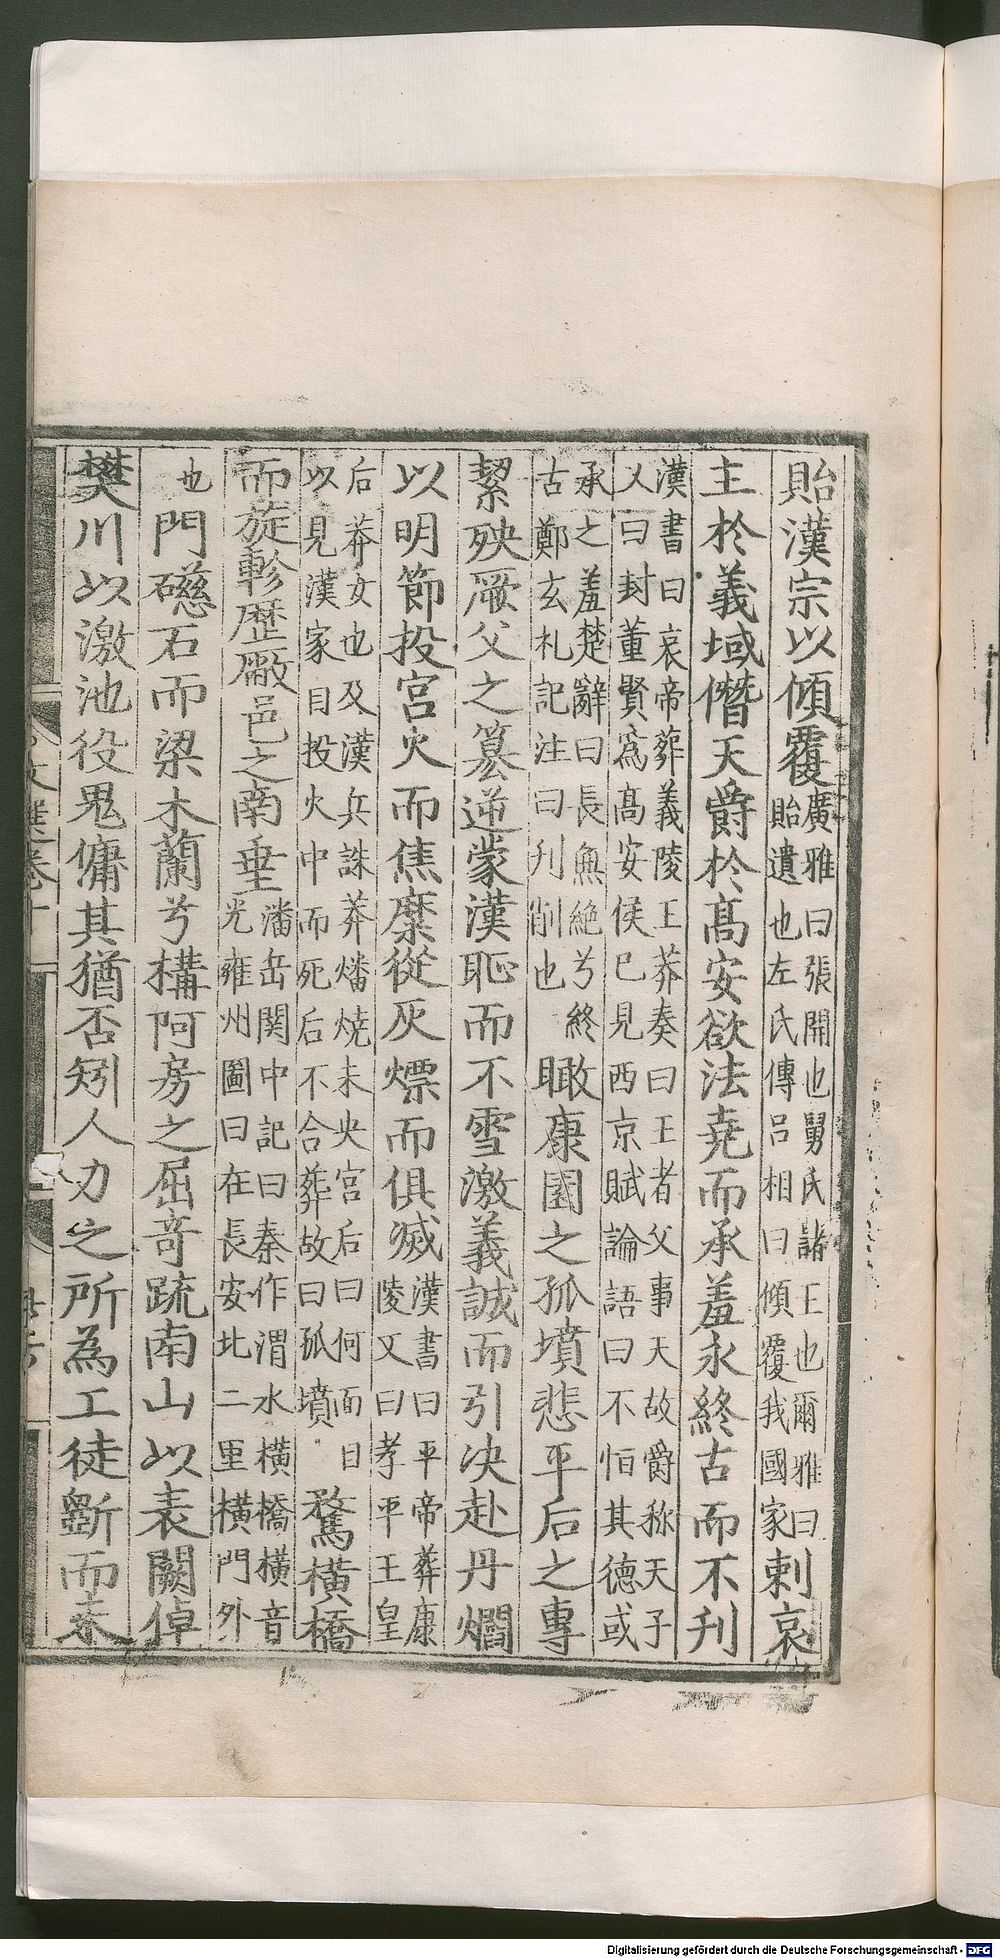 貽漢宗以傾覆廣雅曰張開也舅氏諸王也爾雅曰貽遺也左氏傳呂相曰傾覆我國家刺哀
主於義域僭天爵於髙安欲法堯而承羞永終古而不刋
漢書曰哀帝葬義陵王莽奏曰王者父事天故爵称天子
乂曰封董賢爲髙安侯已見西京賦論語曰不恒其德或
承之羞楚辭曰長無絶兮終古鄭玄札記注曰刋削也瞰康園之孤墳悲平后之專
絜殃厥父之簒逆蒙漢恥而不雪激義誠而引决赴丹爓
以明節投宮火而焦糜從灰熛而俱滅漢書曰平帝葬康陵又曰孝平王皇
后莽女也及漢兵誅莽燔燒未央宮后曰何面目以見漢家自投火中而死后不合葬故曰孤墳騖橫橋
而旋軫歷敝邑之南垂潘岳関中記曰秦作渭水橫橋橫音光雍州圖曰在長安北二里橫門外
也門礠石而梁木蘭兮構阿房之屈奇疏南山以表闕倬
樊川以激池役鬼傭其猶否矧人力之所為工徒斵而未
文選卷十